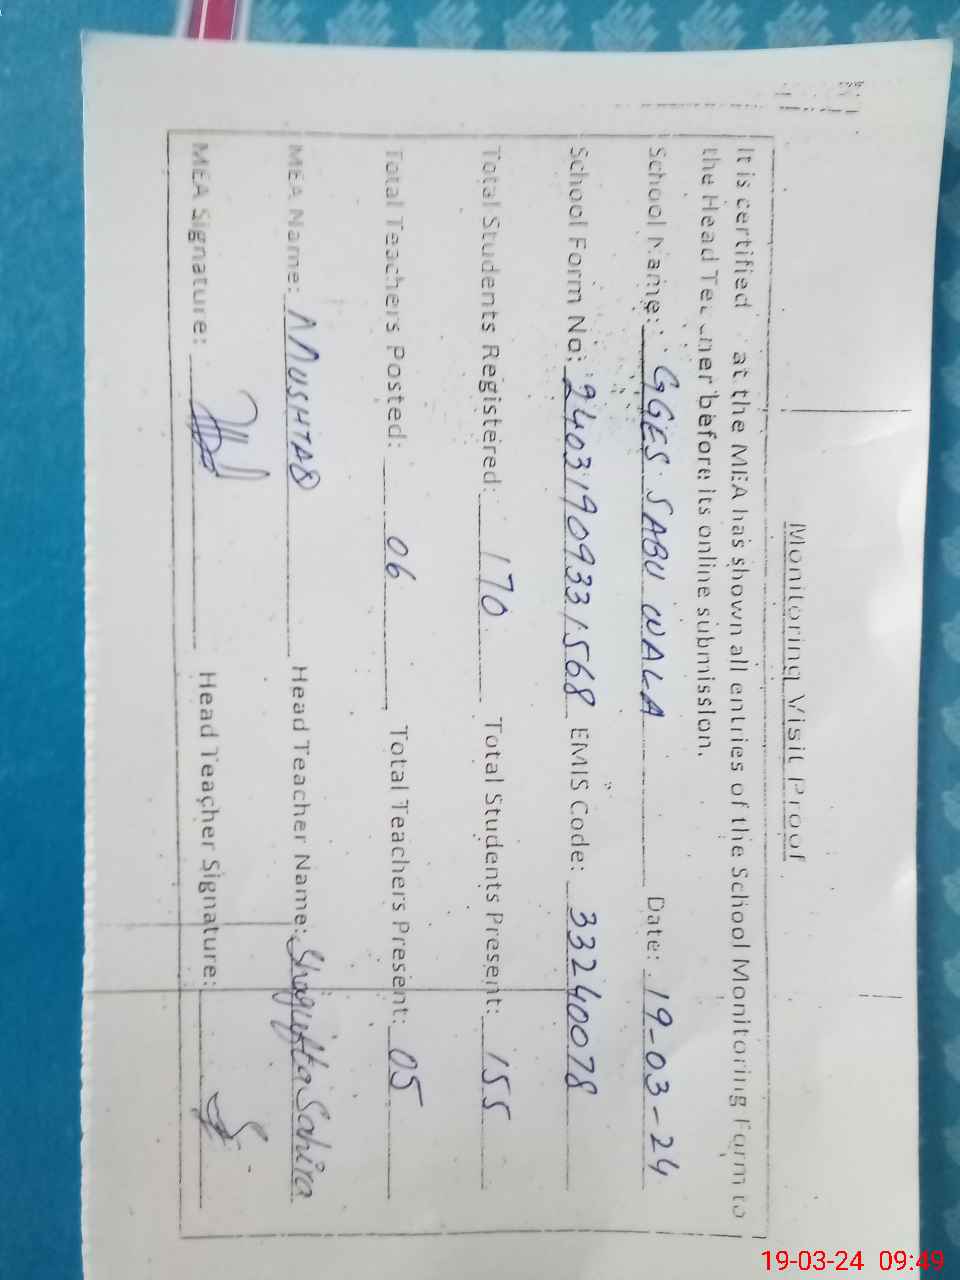 Monitoring Visit Proof
It is certified at the MEA has shown all entries of the School Monitoring Form to
the Head Teacher before its online submission.
School Name: GGES SABU WALA Date: 19-03-24
School Form No: 24031909331568 EMIS Code: 33240078
Total Students Registered: 170 Total Students Present: 155
Total Teachers Posted: 06 Total Teachers Present: 05
MEA Name: MUSHTAQ Head Teacher Name: Shagufta Sahira
MEA Signature: Head Teacher Signature:
19-03-24 09:49